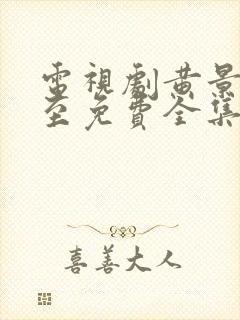 電視劇黄景
至免費全集
喜善大人